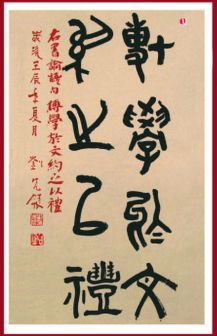 博學於文
約之以禮
右書論語句博學於文約之以禮
歲次壬辰年夏月